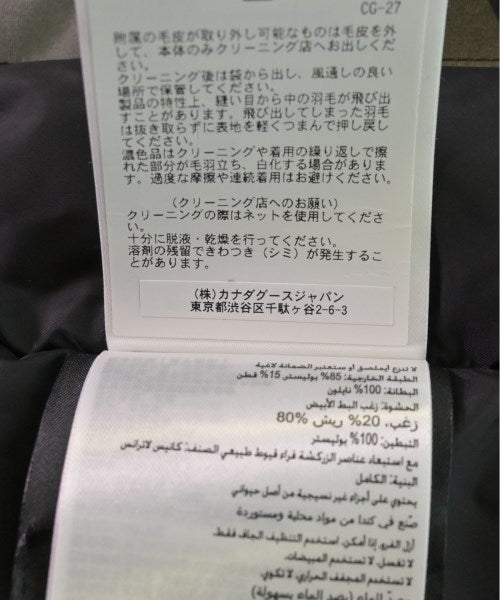 CG-27
附属の毛皮が取り外し可能なものは毛皮を外
して、本体のみクリーニング店へお出しくだ
さい。
クリーニング後は袋から出し、風通しの良い
場所で保管してください。
製品の特性上、縫い目から中の羽毛が飛び出
すことがあります。飛び出してしまった羽毛
は抜き取らずに表地を軽くつまんで押し戻し
てください。
濃色品はクリーニングや着用の繰り返しで擦
れた部分が毛羽立ち、白化する場合がありま
す。過度な摩擦や連続着用はお避けください。
(クリーニング店へのお願い)
クリーニングの際はネットを使用してくださ
い。
十分に脱液・乾燥を行ってください。
溶剤の残留できわつき(シミ)が発生するこ
とがあります。
(株)カナダグースジャパン
東京都渋谷区千駄ヶ谷2-6-3
لا تنزع الملصق أو ستعتبر الضمانة لاغية
الطبقة الخارجية: 85% بوليستر, 15% قطن
البطانة: 100% نايلون
الحشوة: زغب البط الأبيض
80% زغب, 20% ريش
التبطين: 100% بوليستر
مع استبعاد عناصر الزركشة فراء قيوط طبيعي الصنف: كانيس لاترانس
البنية: الكامل
يحتوي على أجزاء غير نسيجية من أصل حيواني
صُنع في كندا من مواد محلية ومستوردة
أزل الفرو, إذا أمكن. استخدم التنظيف الجاف فقط.
لا تغسل. لا تستخدم المبيضات.
لا تستخدم المجفف الحراري. لا تكوي.